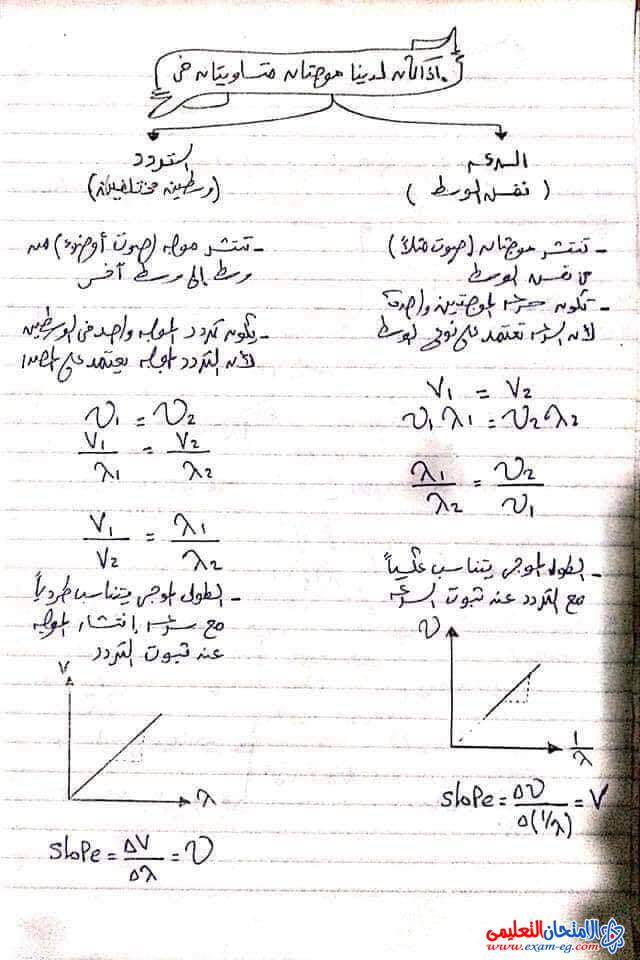 إذا كان لدينا موجتان متساويتان في
السرعة
(نفس الوسط)
- تنتشر موجتان (صوت مثلاً)
في نفس الوسط
- تكون سرعة الموجتين واحدة
لأن السرعة تعتمد على نوع الوسط
V₁ = V₂
υ₁ λ₁ = υ₂ λ₂
λ₁/λ₂ = υ₂/υ₁
- الطول الموجي يتناسب عكسياً
مع التردد عند ثبوت السرعة
υ
1/λ
Slope = Δυ/Δ(1/λ) = V
التردد
(وسطين مختلفين)
- تنتشر موجة (صوت أو ضوء) من
وسط إلى وسط آخر
- يكون تردد الموجة واحد في الوسطين
لأن التردد الموجة يعتمد على المصدر
υ₁ = υ₂
V₁/λ₁ = V₂/λ₂
V₁/V₂ = λ₁/λ₂
- الطول الموجي يتناسب طردياً
مع سرعة إنتشار الموجة
عند ثبوت التردد
V
λ
Slope = ΔV/Δλ = υ
الامتحان التعليمى
www.exam-eg.com